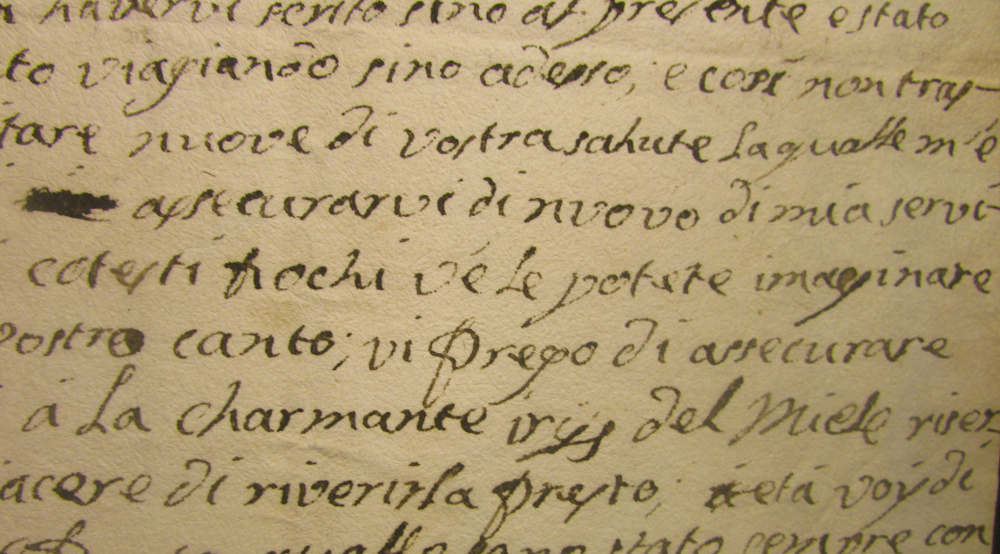 havervi scrito sino al presente e stato
to viagiando sino adesso; e così non tras-
tare nuove di vostra salute la qualle m'è
assecurarvi di nuovo di mia servi-
cotesti fiochi ve le potete imaginare
vostro canto; vi prego di assecurare
à la charmante iriss del Miele riser
iacere di riverirla presto; età voij di
qualle sono stato sempre con